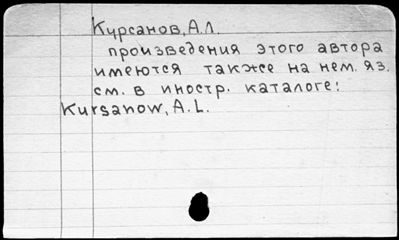 Курсанов, А.Л.
произведения этого автора
имеются также на нем. яз.
см. в иностр. каталоге:
Kursanow, A.L.